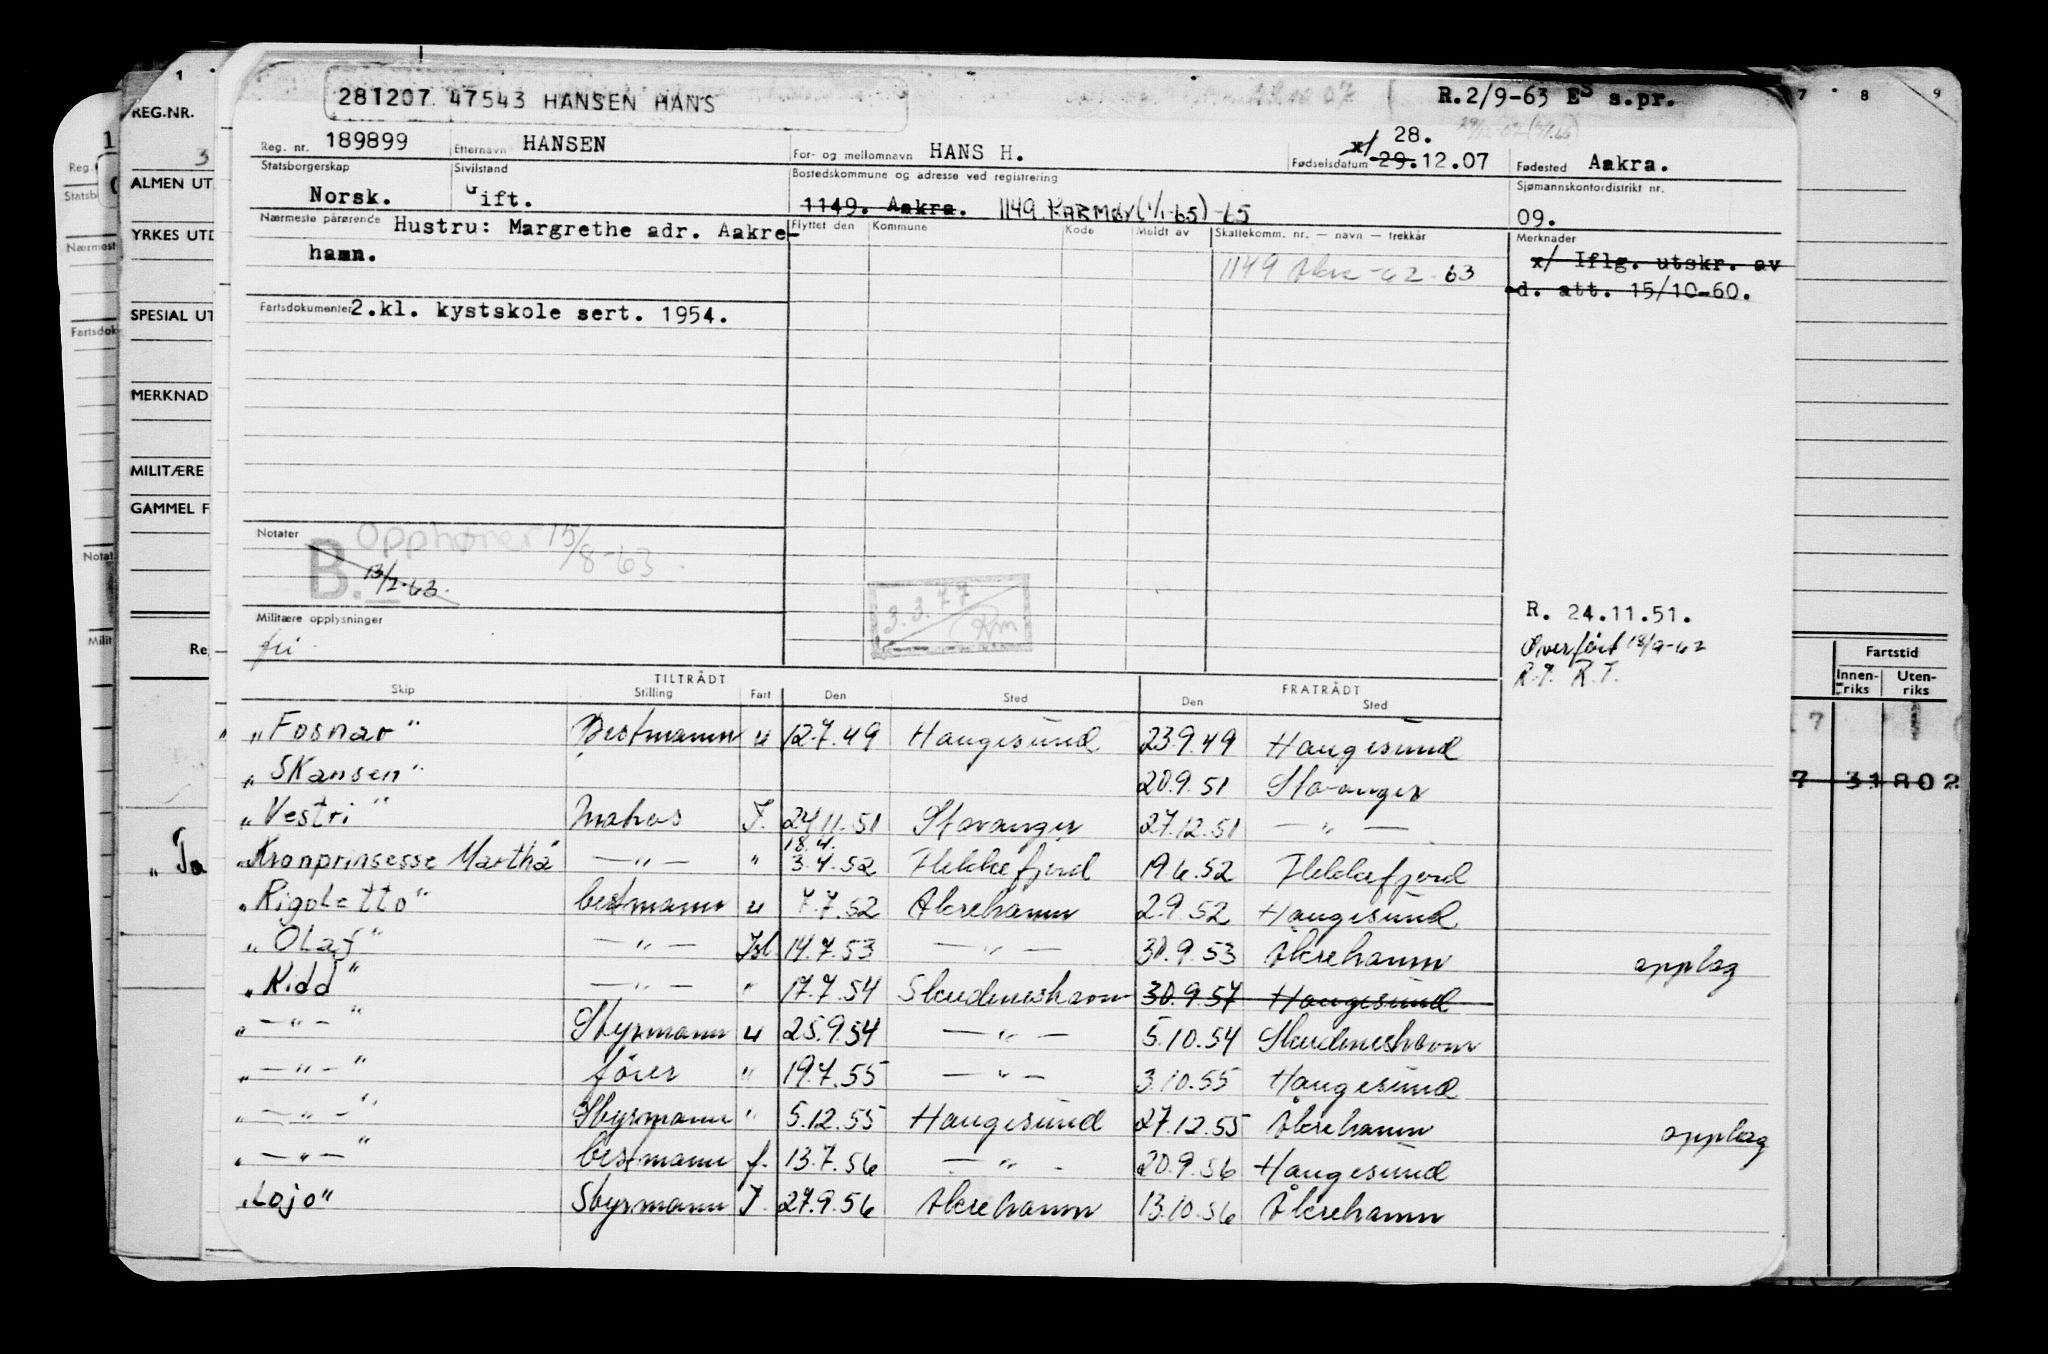 281207 47543 HANSEN HANS
R.2/9-63 ES s.pr.
Reg. nr. 189899 Etternavn HANSEN For- og mellomnavn HANS H. x/ 28. Fødselsdatum 29.12.07 Fødested Aakra.
Statsborgerskap Norsk. Sivilstand Gift. Bostedskommune og adresse ved registrering 1149. Aakra. 1149 KARMØY (1/1-65) -65 Sjømannskontordistrikt nr. 09.
Nærmeste pårørende Hustru: Margrethe adr. Aakre-
hamn.
Flyttet den Kommune Kode Meldt av Skattekomm. nr. — navn — trekkår Merknader
1149 -62-63
x/ Iflg. utskr. av
d. att. 15/10-60.
Fartsdokumenter 2.kl. kystskole sert. 1954.
Notater
Opphører 15/8-63
B. 13/2-63.
3.3.77
Militære opplysninger
R. 24.11.51.
Overført 18/9-62
R.T. R.T.
TILTRÅDT FRATRÅDT
Skip Stilling Fart Den Sted Den Sted
"Fosnar" Bestmann u 12.7.49 Haugesund 23.9.49 Haugesund
"Skansen" 20.9.51 Stavanger
"Vestri" Matros I. 24.11.51 Stavanger 27.12.51 — " —
18.4.
"Kronprinsesse Märtha" — " — " 3.4.52 Flekkefjord 19.6.52 Flekkefjord
"Rigoletto" bestmann u 7.7.52 Åkrehamn 2.9.52 Haugesund
"Olaf" — " — Isl 14.7.53 — " — 30.9.53 Åkrehamn opplag
"Kidd" — " — " 17.7.54 Skudeneshavn 30.9.57 Haugesund
" — " — " Styrmann u 25.9.54 — " — 5.10.54 Skudeneshavn
" — " — " fører " 19.7.55 — " — 3.10.55 Haugesund
" — " — " Styrmann " 5.12.55 Haugesund 27.12.55 Åkrehamn opplag
" — " — " bestmann f. 13.7.56 — " — 20.9.56 Haugesund
"Lojo" Styrmann I 27.9.56 Åkrehamn 13.10.56 Åkrehamn
REG.NR.
ALMEN UT
YRKES UTD
SPESIAL UT
MERKNAD
MILITÆRE
GAMMEL F
Fartstid
Innen-riks Uten-riks
7 31802